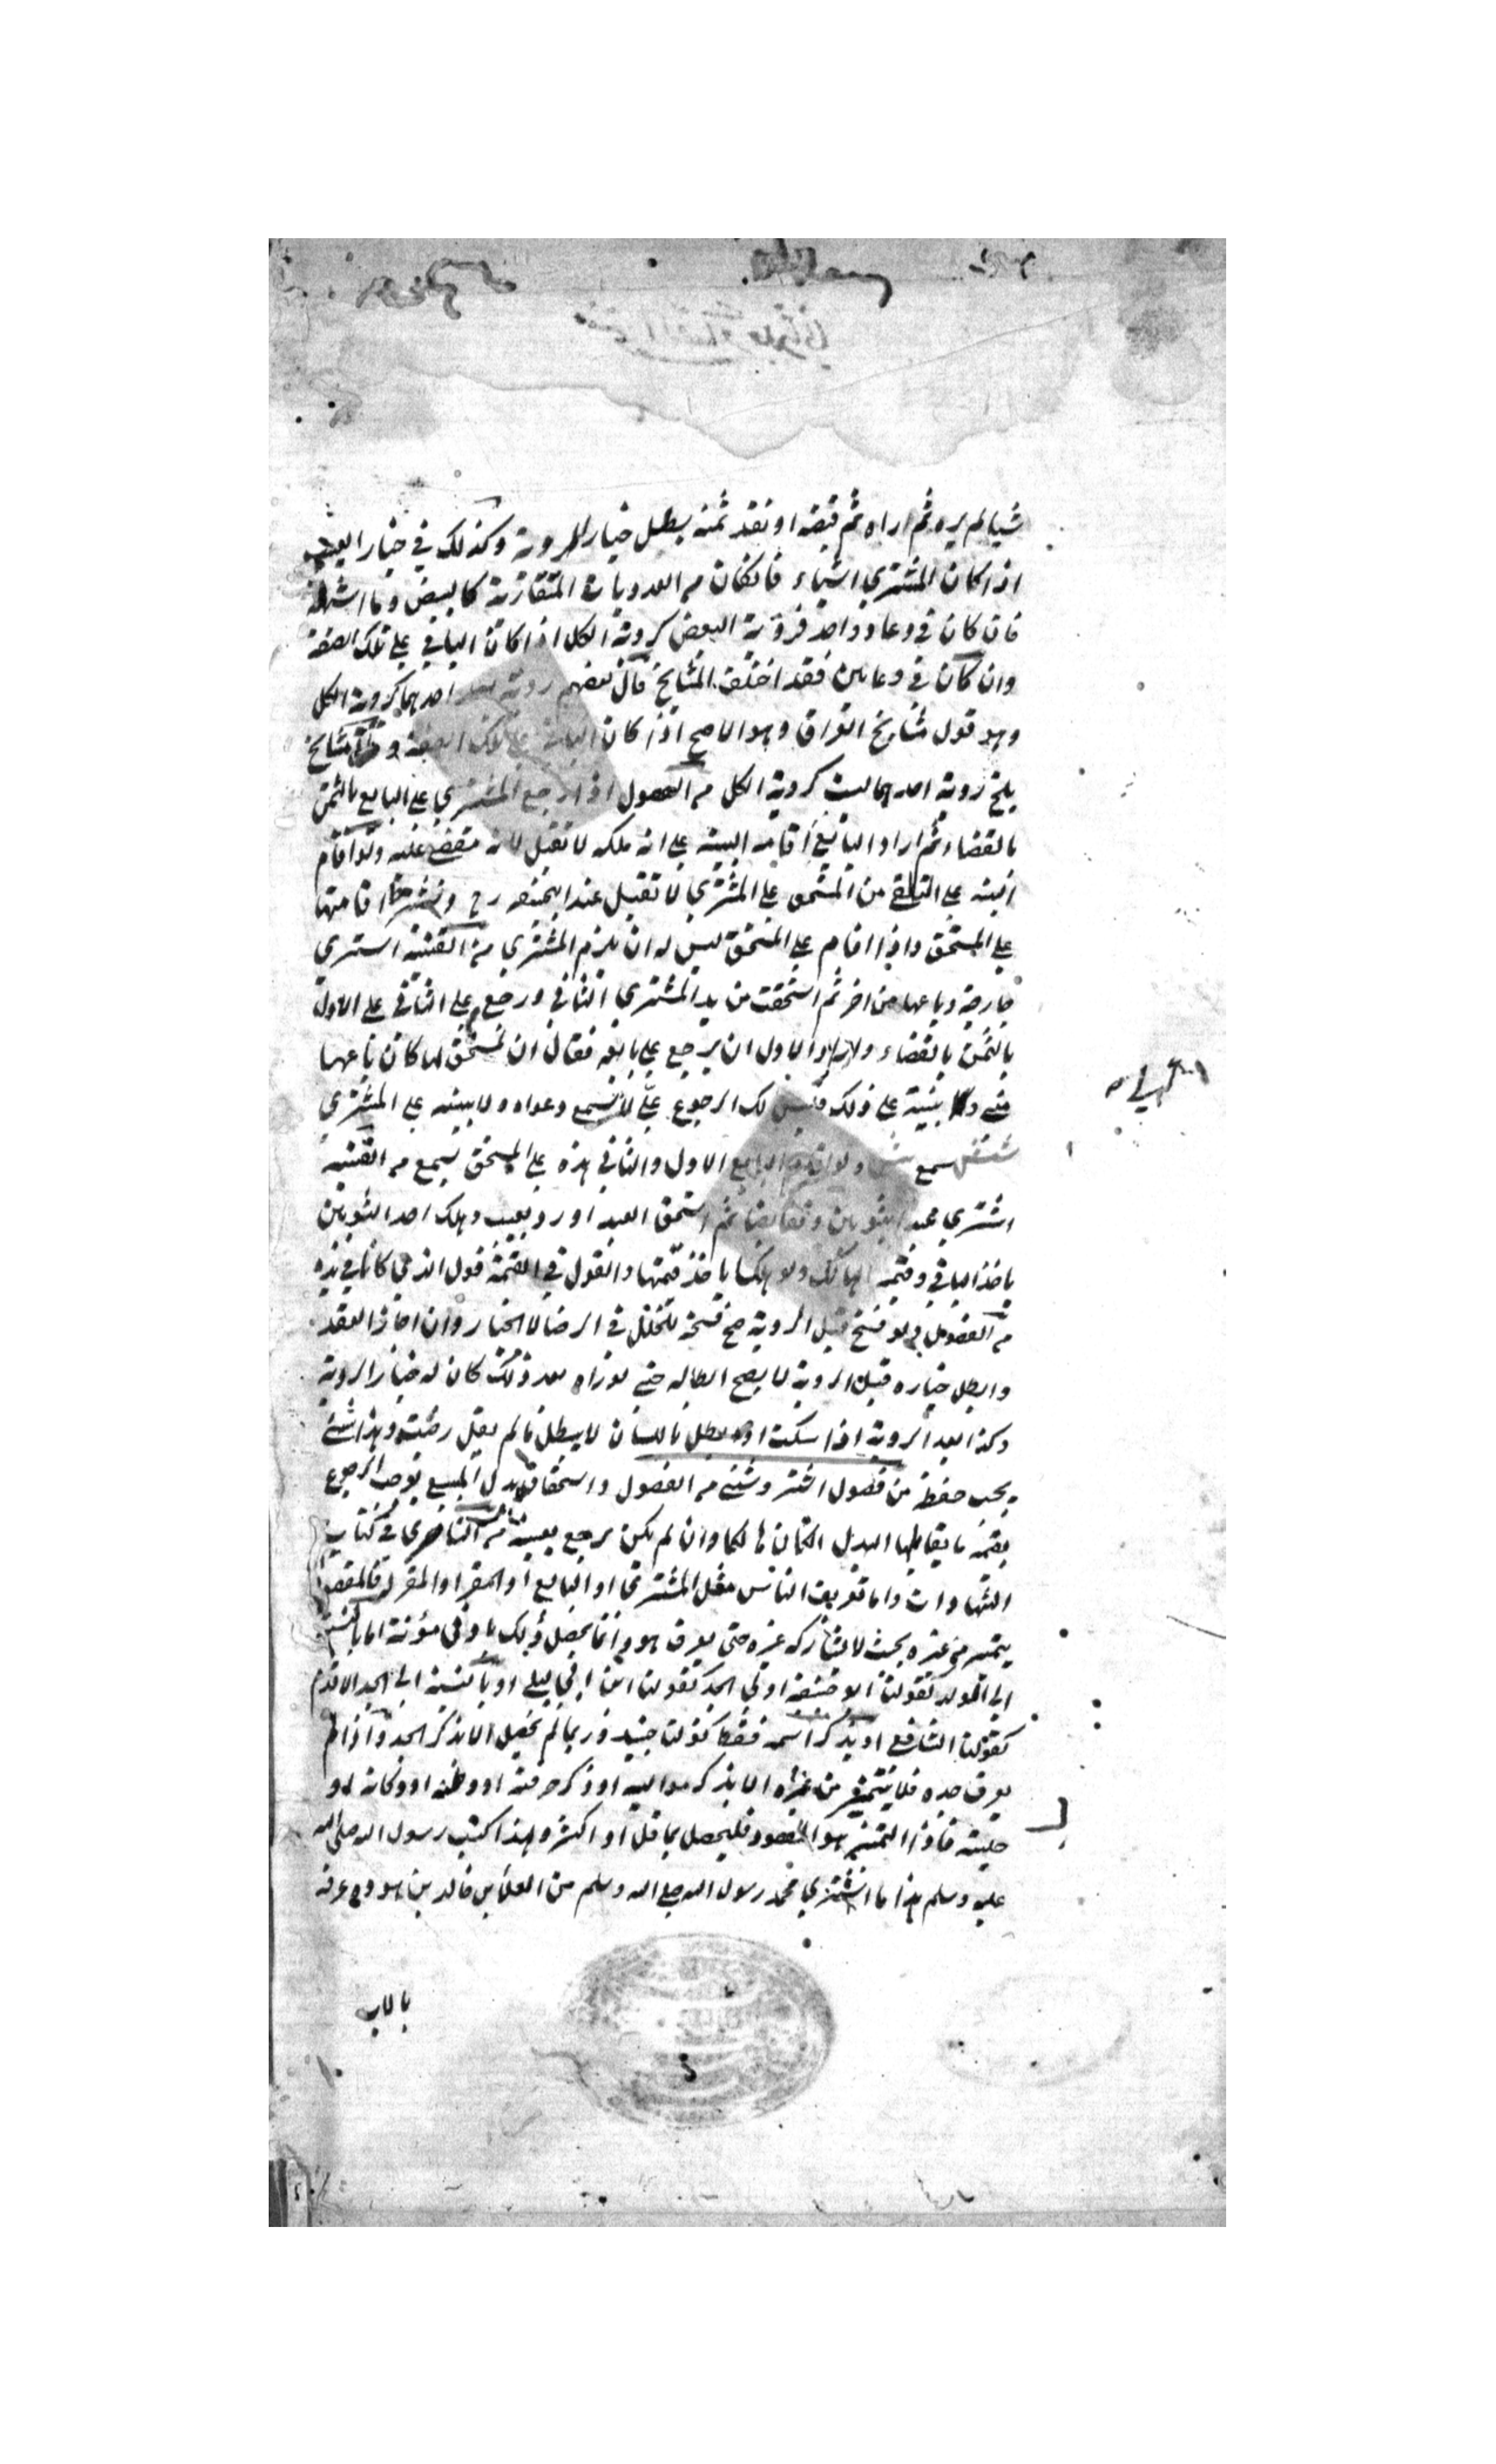 شيا لم يره ثم اراه ثم قبضه او نقد ثمنه يبطل خيار الروية وكذلك في خيار العيب
اذا كان المشتري اشياء فان كان من العدديات المتقاربة كالبيض وما اشبهه
فان كان في وعاء واحد فروية البعض كروية الكل اذا كان الباقي على تلك الصفة
وان كان في وعاءين فقد اختلف المشايخ قال بعضهم روية احدهما كروية الكل
وهو قول مشايخ العراق وهو الاصح اذا كان الباقي على تلك الصفة و مشايخ
بلخ روية احدهما ليست كروية الكل من الفصول اذا رجع المشتري على البايع بالثمن
بالقضاء ثم اراد البايع اقامة البينة على انه ملكه لا تقبل لانه مقضي عليه ولو اقام
البينة على التلقي من المستحق على المشتري لا تقبل عند ابي حنيفه رح وشرط اقامتها
على المستحق واذا اقام على المستحق ليس له ان يلزم المشتري من القنية اشتري
جارية وباعها من اخر ثم استحقت من يد المشتري الثاني ورجع على الثاني على الاول
بالثمن بالقضاء واراد الاول ان يرجع على بايعه فقال ان المستحق لها كان باعها
مني و بينة على ذلك فليس لك الرجوع علي لا تسمع دعواه ولا بينته على المشتري
سمع ولو اقام البايع الاول والثاني هذه على المستحق يسمع من القنية
اشتري عبدا بثوبين وتقابضا ثم استحق العبد او رد بعيب وهلك احد الثوبين
ياخذ الباقي وقيمة الهالك ولو هلكا ياخذ قيمتها والقول في القيمة قول الذي كانا في يده
من الفصول ولو فسخ قبل الروية صح فسخه لتخلل في الرضا لا الخيار وان اجاز العقد
وابطل خياره قبل الروية لا يصح ابطاله حتى لو راه بعد ذلك كان له خيار الروية
وكذا بعد الروية اذا سكت او يبطل باللسان لا يبطل ما لم يقل رضيت وهذا شئ
يجب حفظه من فصول الاشتر وشني من الفصول واستحقاق بدل المبيع يوجب الرجوع
بقيمة ما يقابلها البدل ان كان هالكا وان لم يكن يرجع بعينه من الناصري في كتاب
الشهادات واما تعريف الناس مثل المشتري او البايع او المقر او المقر له فالمقصود
يتميز من غيره بحيث لا يشاركه غيره حتى يعرف هو وانما يحصل ذلك بادنى مؤنة اما بالنسبة
الى الولد كقولنا ابو حنيفة او الى الجد كقولنا ابن ابي ليلى او بالنسبة الى الجد الاقدم
كقولنا الشافعي او يذكر اسمه فقط كقولنا جنيد وربما لم يحصل الا بذكر الجد واذا لم
يعرف جده فلا يتميز من غيره الا بذكر مواليه او ذكر حرفته او وطنه او دكانه او
حليته فاذا التميز هو المقصود فليحصل بما قل او اكثر ولهذا كتب رسول الله صلى الله
عليه وسلم هذا ما اشتري محمد رسول الله صلى الله وسلم من العداء بن خالد بن هوده عرفه
بالاب